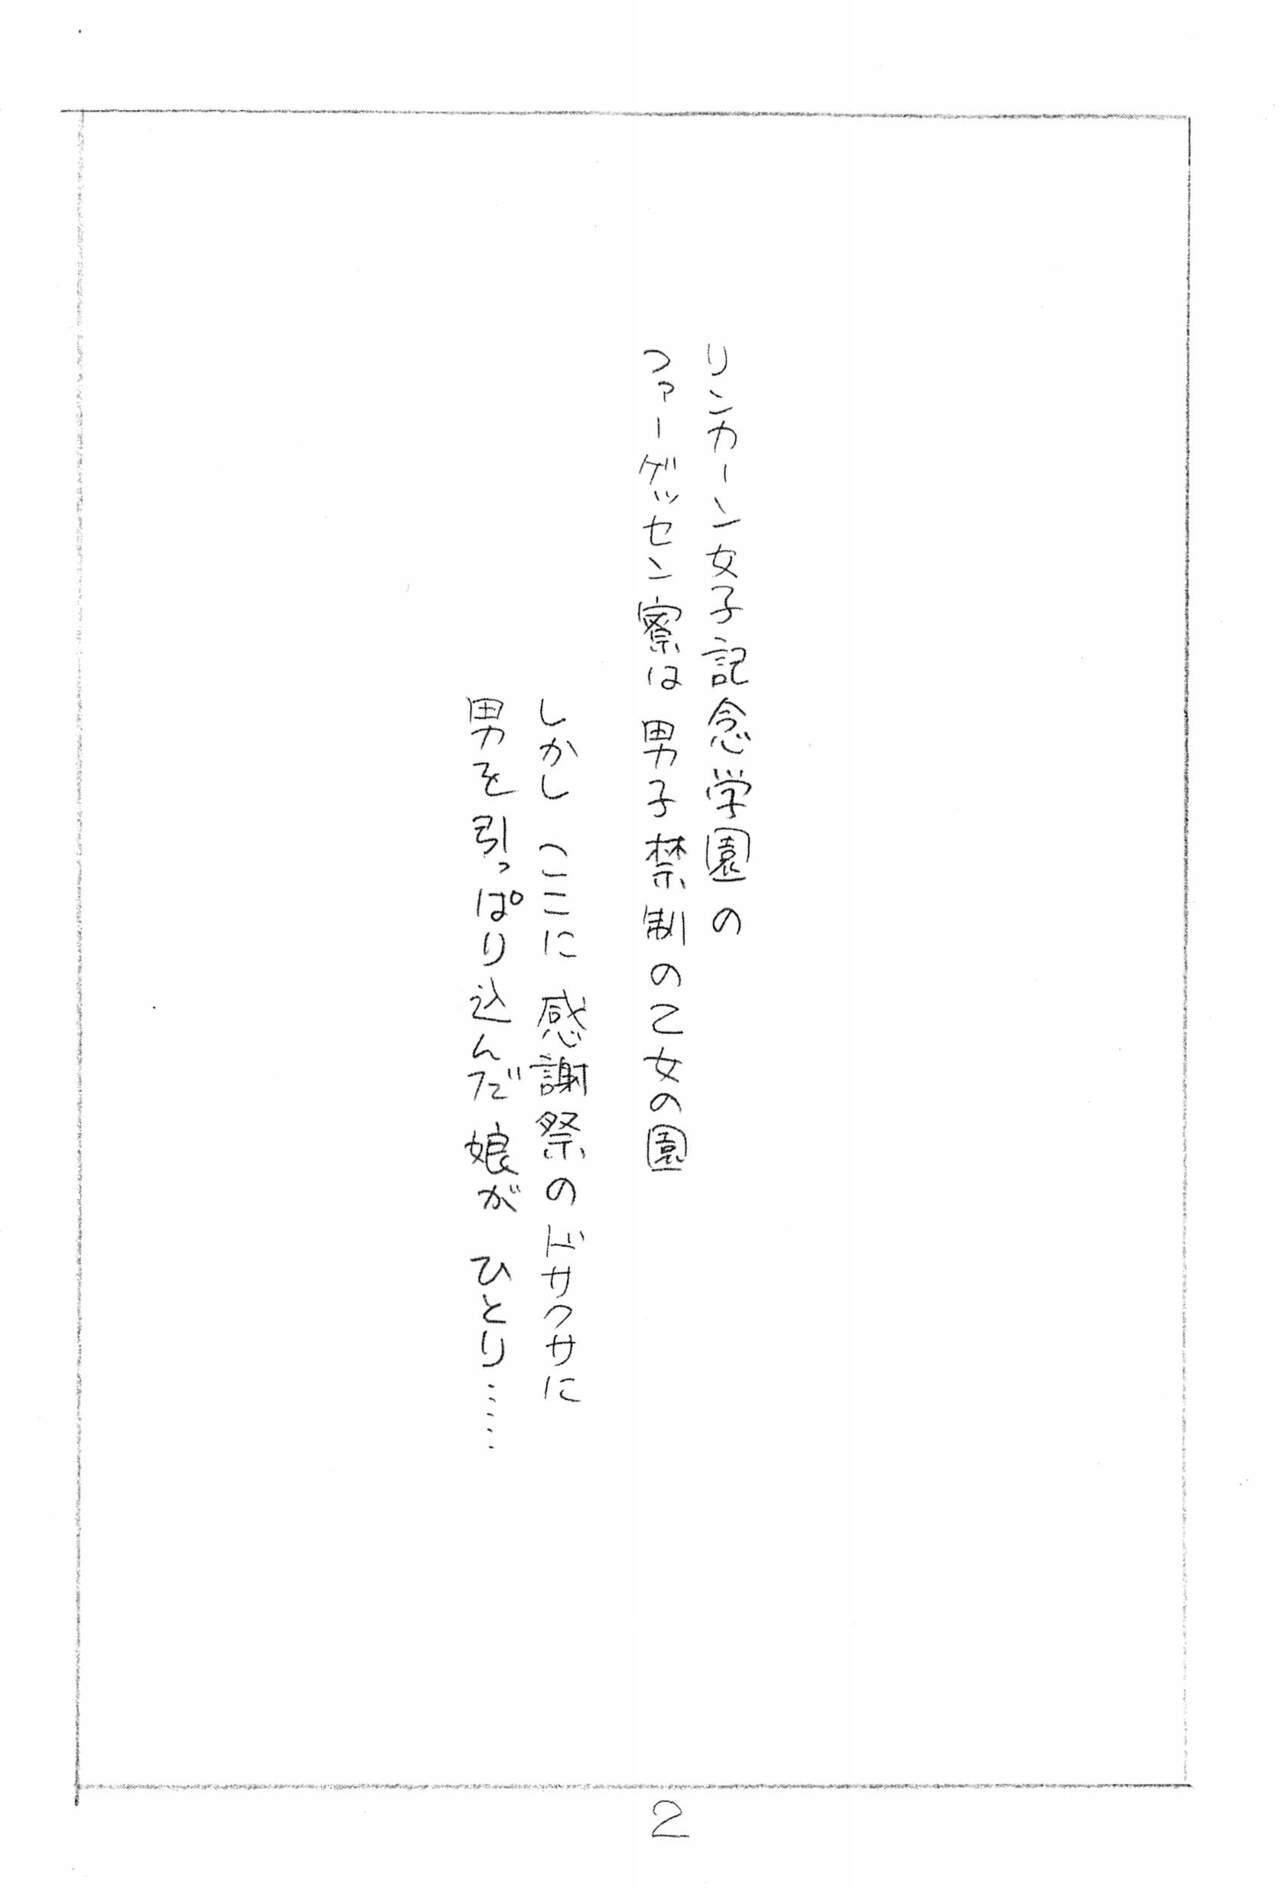 リンカーン女子記念学園の
ファーゲッセン寮は男子禁制の乙女の園
しかし ここに感謝祭のドサクサに
男を引っぱり込んだ娘が ひとり……
2